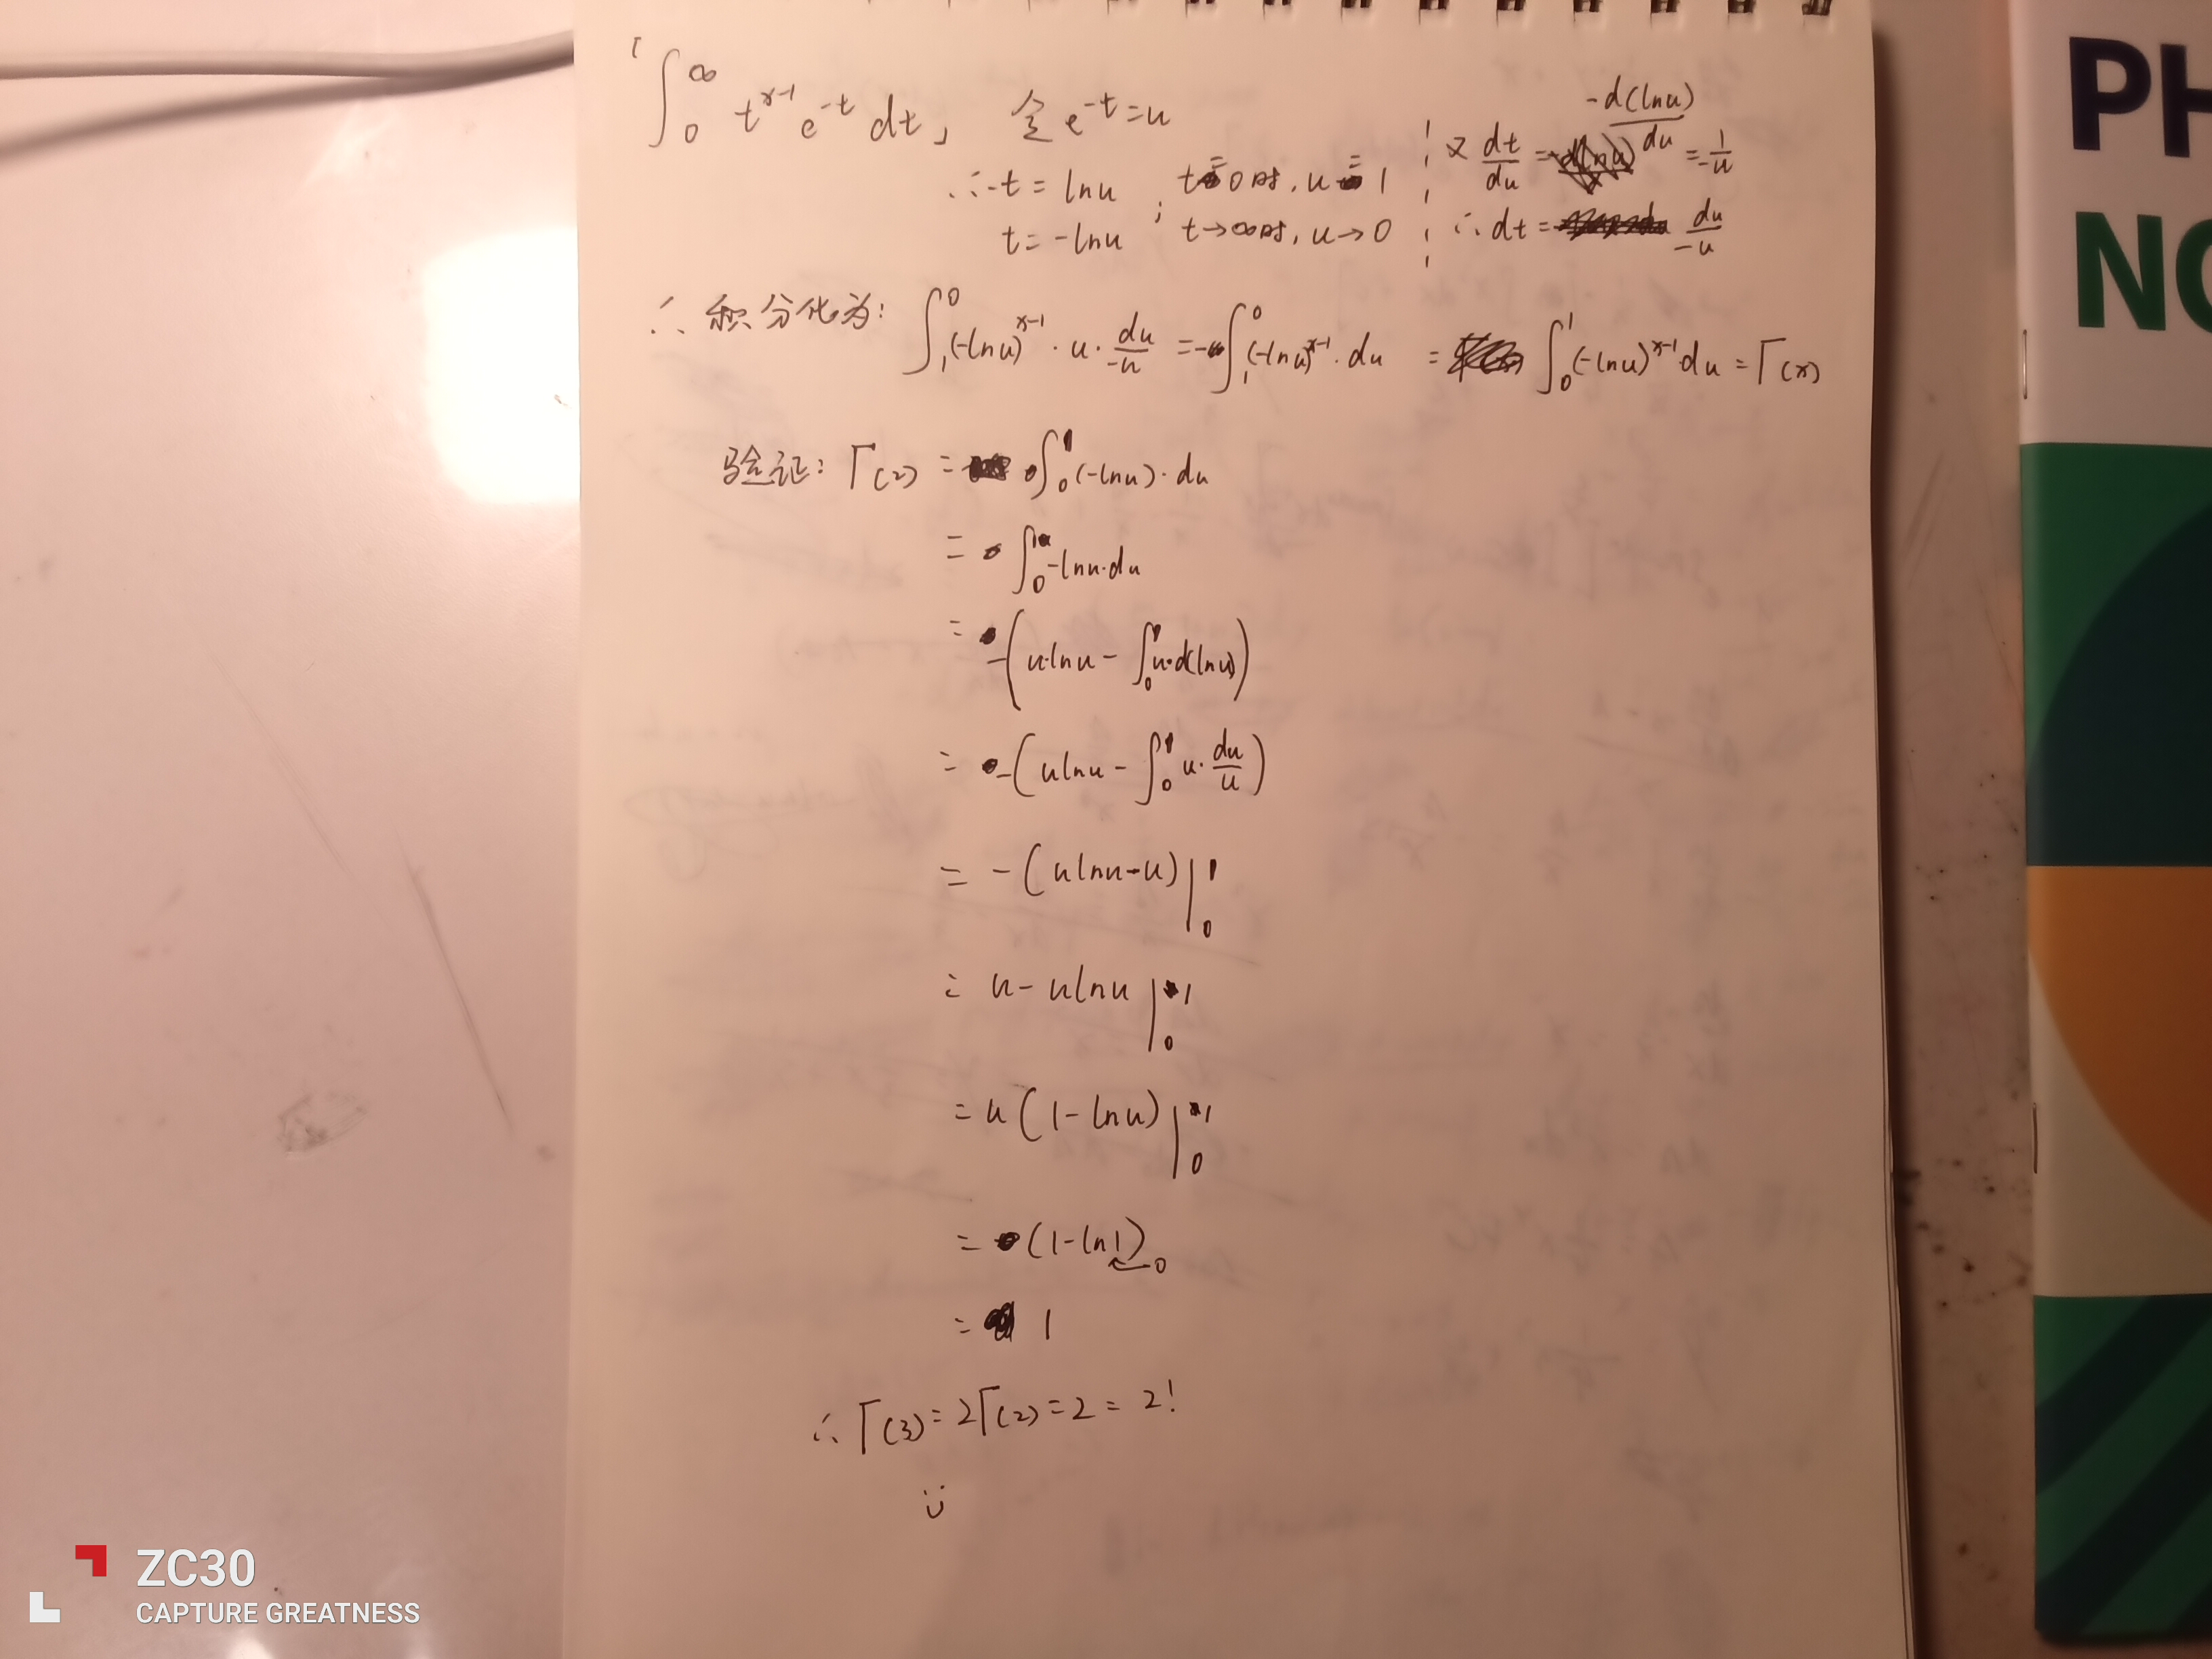 「∫₀^∞ t^(x-1) e^(-t) dt」 令 e^(-t) = u
∴ -t = ln u ; t = 0 时, u = 1
t = -ln u ; t → ∞ 时, u → 0
又 dt/du = -d(ln u)/du = -1/u
∴ dt = du/-u
∴ 积分化为: ∫₁⁰ (-ln u)^(x-1) · u · du/-u = -∫₁⁰ (-ln u)^(x-1) · du = ∫₀¹ (-ln u)^(x-1) du = Γ(x)
验证: Γ(2) = ∫₀¹ (-ln u) · du
= ∫₀¹ -ln u · du
= -(u·ln u - ∫₀¹ u·d(ln u))
= -(u ln u - ∫₀¹ u · du/u)
= -(u ln u - u)|₀¹
= u - u ln u |₀¹
= u(1 - ln u)|₀¹
= (1 - ln 1) 0
= 1
∴ Γ(3) = 2Γ(2) = 2 = 2!
PH
NO
ZC30
CAPTURE GREATNESS